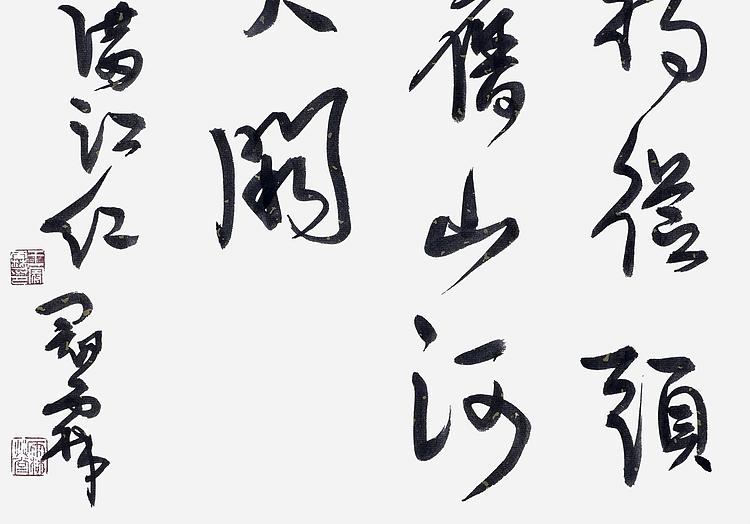 待從頭
舊山河
天闕
滿江紅